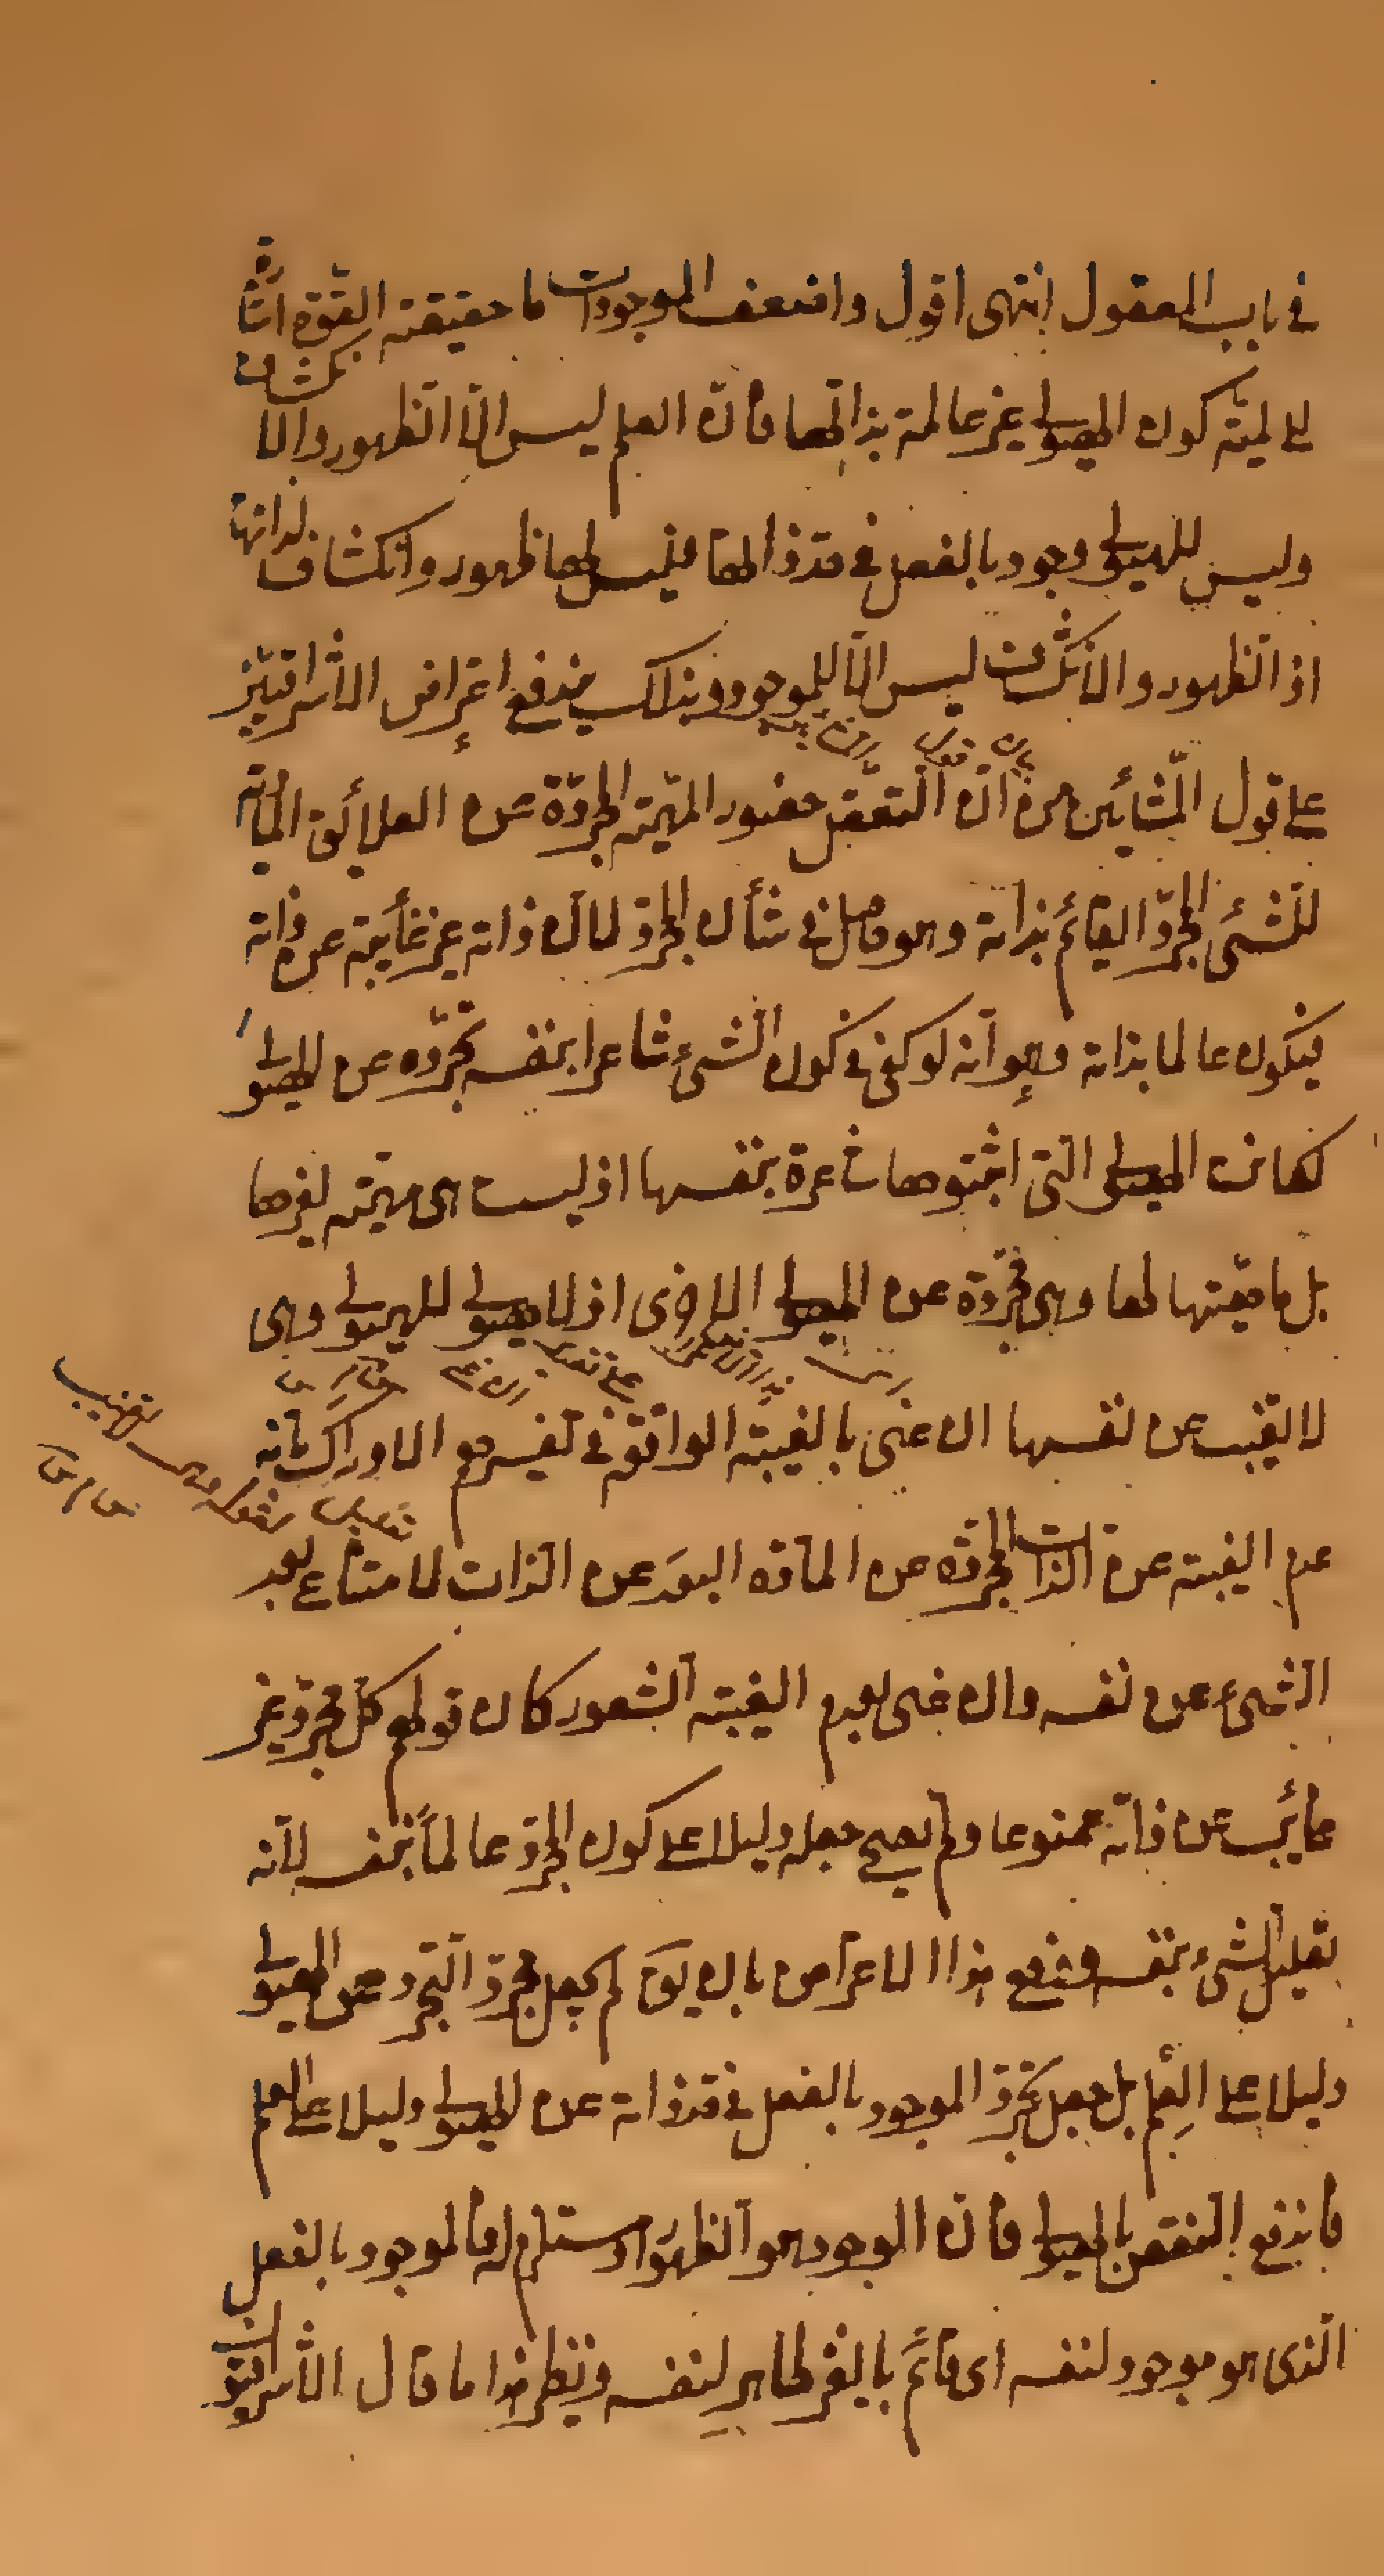 في باب المعقول انتهى اقول واضعف الموجودات ما حقيقته القوة اشارة
الى لميّة كون الهيولى غير عالمة بذاتها فانّ العلم ليس الّا الظهور والانكشاف
وليس للهيولى وجود بالفعل في حدّ ذاتها فليس لها ظهور وانكشاف لذاتها
اذ الظهور والانكشاف ليس الّا للموجود وبذلك يندفع اعتراض الاشراقيّين
على قول المشّائين من انّ التعقّل حضور المهيّة المجرّدة عن العلائق المادّية
للشئ المجرّد القائم بذاته وهو حاصل في شأن المجرّد لانّ ذاته غير غائبة عن ذاته
فيكون عالما بذاته وهو انّه لو كفى في كون الشئ شاعرا بنفسه تجرّده عن الهيولى
لكانت الهيولى التى اثبتوها شاعرة بنفسها اذ ليست هى مهيّة لغيرها
بل ماهيّتها لها وهى مجرّدة عن الهيولى الاخرى اذ لا هيولى للهيولى وهى
لا تغيب عن نفسها ان عنى بالغيبة الواقعة في تفسيرهم الادراك بانّه
عدم الغيبة عن الذات المجرّدة عن المادّة البعد عن الذات لامتناع بعد
الشئ عن نفسه وان عنى بعدم الغيبة الشعور كان قولهم كل مجرّد غير
غائب عن ذاته ممنوعا ولم يصح جعله دليلا على كون المجرّد عالماً بنفسه لانّه
تعليل الشئ بنفسه فيندفع هذا الاعتراض بان يق لم يجعل مجرّد التجرّد عن الهيولى
دليلا على العلم بل جعل تجرّد الموجود بالفعل في حدّ ذاته عن الهيولى دليلا على العلم
فاندفع النقض بالهيولى فانّ الوجود هو الظهور او مستلزم له فالموجود بالفعل
الّذى هو موجود لنفسه اى قائم بالغير ظاهر لنفسه ونظير هذا ما قال الاشراقيّون